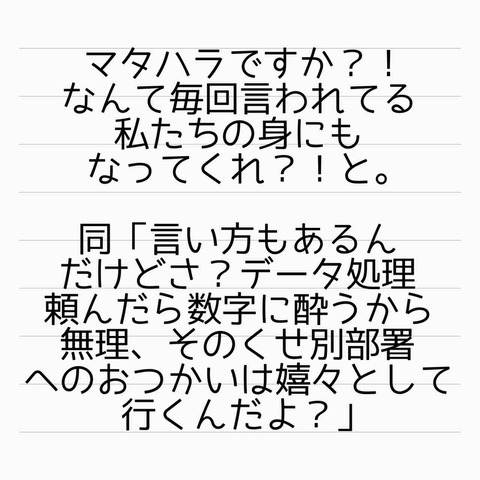 マタハラですか？！
なんて毎回言われてる
私たちの身にも
なってくれ？！と。
同「言い方もあるん
だけどさ？データ処理
頼んだら数字に酔うから
無理、そのくせ別部署
へのおつかいは嬉々として
行くんだよ？」